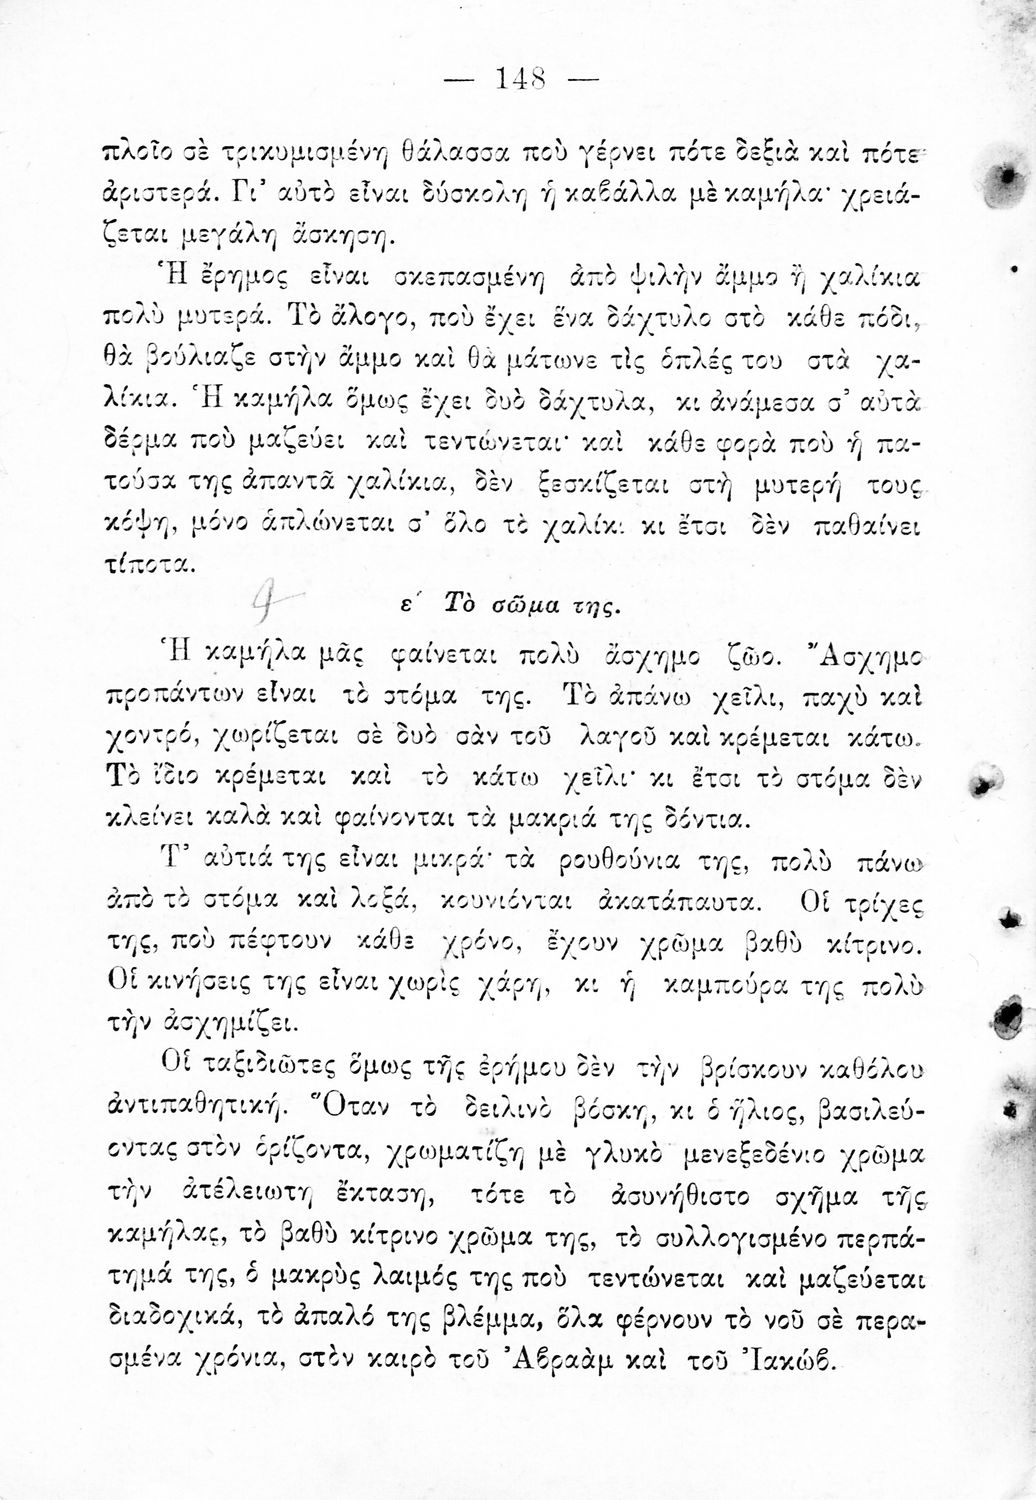 — 148 —
πλοῖο σὲ τρικυμισμένη θάλασσα ποὺ γέρνει πότε δεξιὰ καὶ πότε
ἀριστερά. Γι’ αὐτὸ εἶναι δύσκολη ἡ καβάλλα μὲ καμήλα· χρειά-
ζεται μεγάλη ἄσκηση.
Ἡ ἔρημος εἶναι σκεπασμένη ἀπὸ ψιλὴν ἄμμο ἢ χαλίκια
πολὺ μυτερά. Τὸ ἄλογο, ποὺ ἔχει ἕνα δάχτυλο στὸ κάθε πόδι,
θὰ βούλιαζε στὴν ἄμμο καὶ θὰ μάτωνε τὶς ὁπλές του στὰ χα-
λίκια. Ἡ καμήλα ὅμως ἔχει δυὸ δάχτυλα, κι ἀνάμεσα σ’ αὐτὰ
δέρμα ποὺ μαζεύει καὶ τεντώνεται· καὶ κάθε φορὰ ποὺ ἡ πα-
τούσα της ἀπαντᾶ χαλίκια, δὲν ξεσκίζεται στὴ μυτερή τους
κόψη, μόνο ἁπλώνεται σ’ ὅλο τὸ χαλίκι κι ἔτσι δὲν παθαίνει
τίποτα.
ε΄ Τὸ σῶμα της.
Ἡ καμήλα μᾶς φαίνεται πολὺ ἄσχημο ζῶο. Ἄσχημο
προπάντων εἶναι τὸ στόμα της. Τὸ ἀπάνω χεῖλι, παχὺ καὶ
χοντρό, χωρίζεται σὲ δυὸ σὰν τοῦ λαγοῦ καὶ κρέμεται κάτω.
Τὸ ἴδιο κρέμεται καὶ τὸ κάτω χεῖλι· κι ἔτσι τὸ στόμα δὲν
κλείνει καλὰ καὶ φαίνονται τὰ μακριά της δόντια.
Τ’ αὐτιά της εἶναι μικρά· τὰ ρουθούνια της, πολὺ πάνω
ἀπὸ τὸ στόμα καὶ λοξά, κουνιόνται ἀκατάπαυτα. Οἱ τρίχες
της, ποὺ πέφτουν κάθε χρόνο, ἔχουν χρῶμα βαθὺ κίτρινο.
Οἱ κινήσεις της εἶναι χωρὶς χάρη, κι ἡ καμπούρα της πολὺ
τὴν ἀσχημίζει.
Οἱ ταξιδιῶτες ὅμως τῆς ἐρήμου δὲν τὴν βρίσκουν καθόλου
ἀντιπαθητική. Ὅταν τὸ δειλινὸ βόσκη, κι ὁ ἥλιος, βασιλεύ-
οντας στὸν ὁρίζοντα, χρωματίζη μὲ γλυκὸ μενεξεδένιο χρῶμα
τὴν ἀτέλειωτη ἔκταση, τότε τὸ ἀσυνήθιστο σχῆμα τῆς
καμήλας, τὸ βαθὺ κίτρινο χρῶμα της, τὸ συλλογισμένο περπά-
τημά της, ὁ μακρὺς λαιμός της ποὺ τεντώνεται καὶ μαζεύεται
διαδοχικά, τὸ ἁπαλό της βλέμμα, ὅλα φέρνουν τὸ νοῦ σὲ περα-
σμένα χρόνια, στὸν καιρὸ τοῦ Ἀβραὰμ καὶ τοῦ Ἰακώβ.